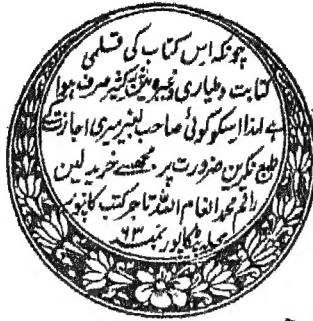 چونکہ اس کتاب کی قسلمی
کتابت و طیاری وغیرہ مین زر کثیر صرف ہوا
ہے لہذا اسکو کوئی صاحب بغیر میری اجازت کے
طبع نکرین ضرورت پر مجھسے خرید لین
راقم محمد انعام اللہ تاجر کتب کانپور
محلہ پٹکاپور نمبر ۶۳